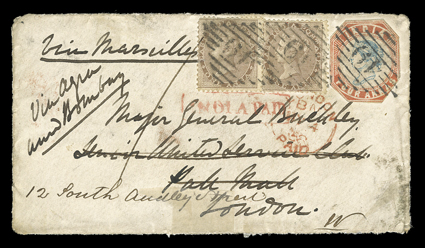 Via Marseilles
Via Agra
and Bombay
INDIA PAID
PAID
Major General Buckley
Senior United Service Club
Pall Mall
12 South Audley Street
London.
W